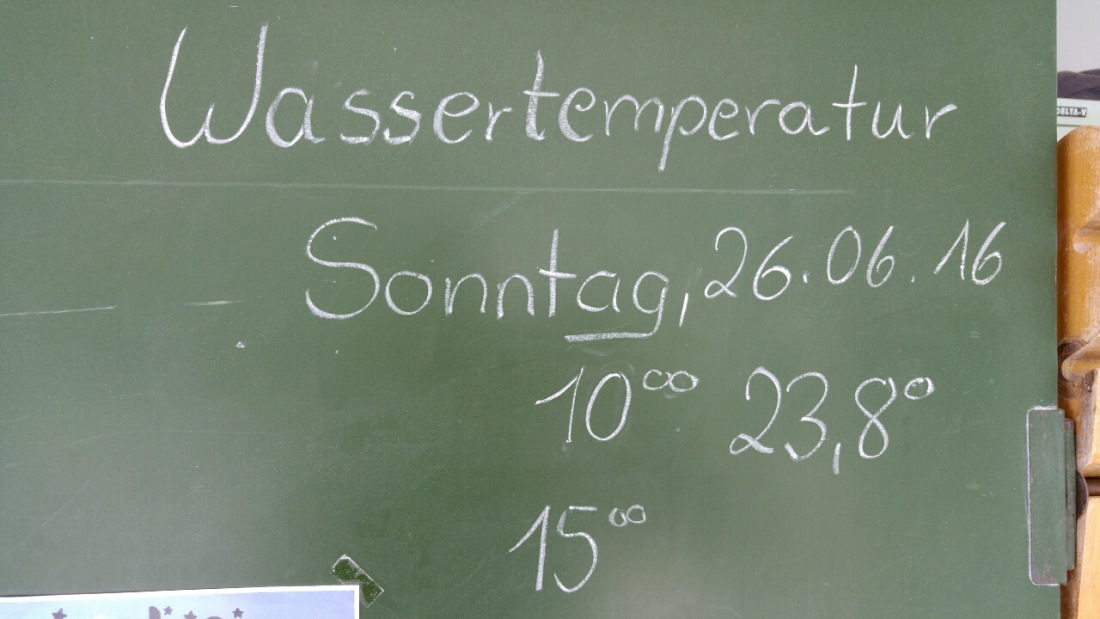 Wassertemperatur
Sonntag, 26.06.16
10⁰⁰ 23,8°
15⁰⁰
DELTA-V